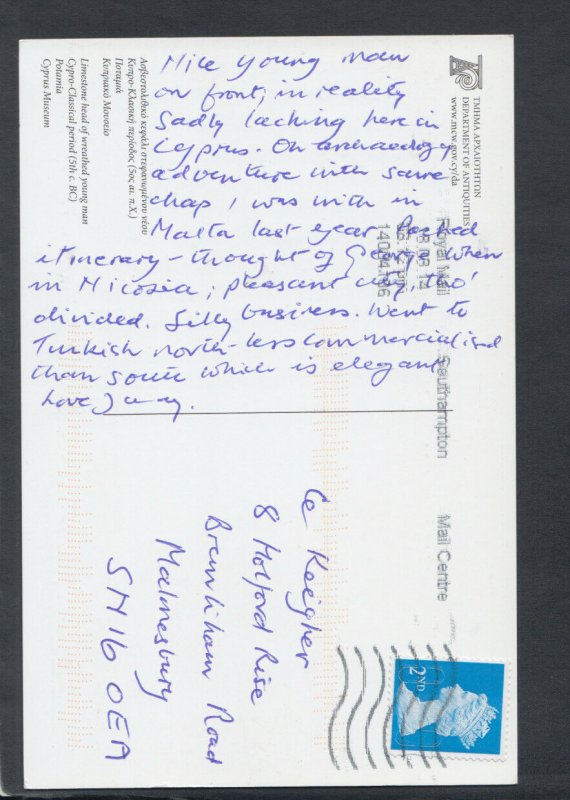 Nice young man
on front, in reality
sadly lacking here in
Cyprus. On archaeology
adventure with same
chap I was with in
Malta last year. Packed
itinerary - thought of George when
in Nicosia; pleasant city, tho'
divided. Silly business. Went to
Turkish north - less commercialised
than south which is elegant
Love
Keigher
8 Holford Rise
Road
Malmesbury
SN16 0EA
Ασβεστολιθικό κεφάλι στεφανωμένου νέου
Κυπρο-Κλασική περίοδος (5ος αι. π.Χ.)
Ποταμιά
Κυπριακό Μουσείο
Limestone head of wreathed young man
Cypro-Classical period (5th c. BC)
Potamia
Cyprus Museum
ΤΜΗΜΑ ΑΡΧΑΙΟΤΗΤΩΝ
DEPARTMENT OF ANTIQUITIES
www.mcw.gov.cy/da
Royal Mail Southampton Mail Centre
2ND